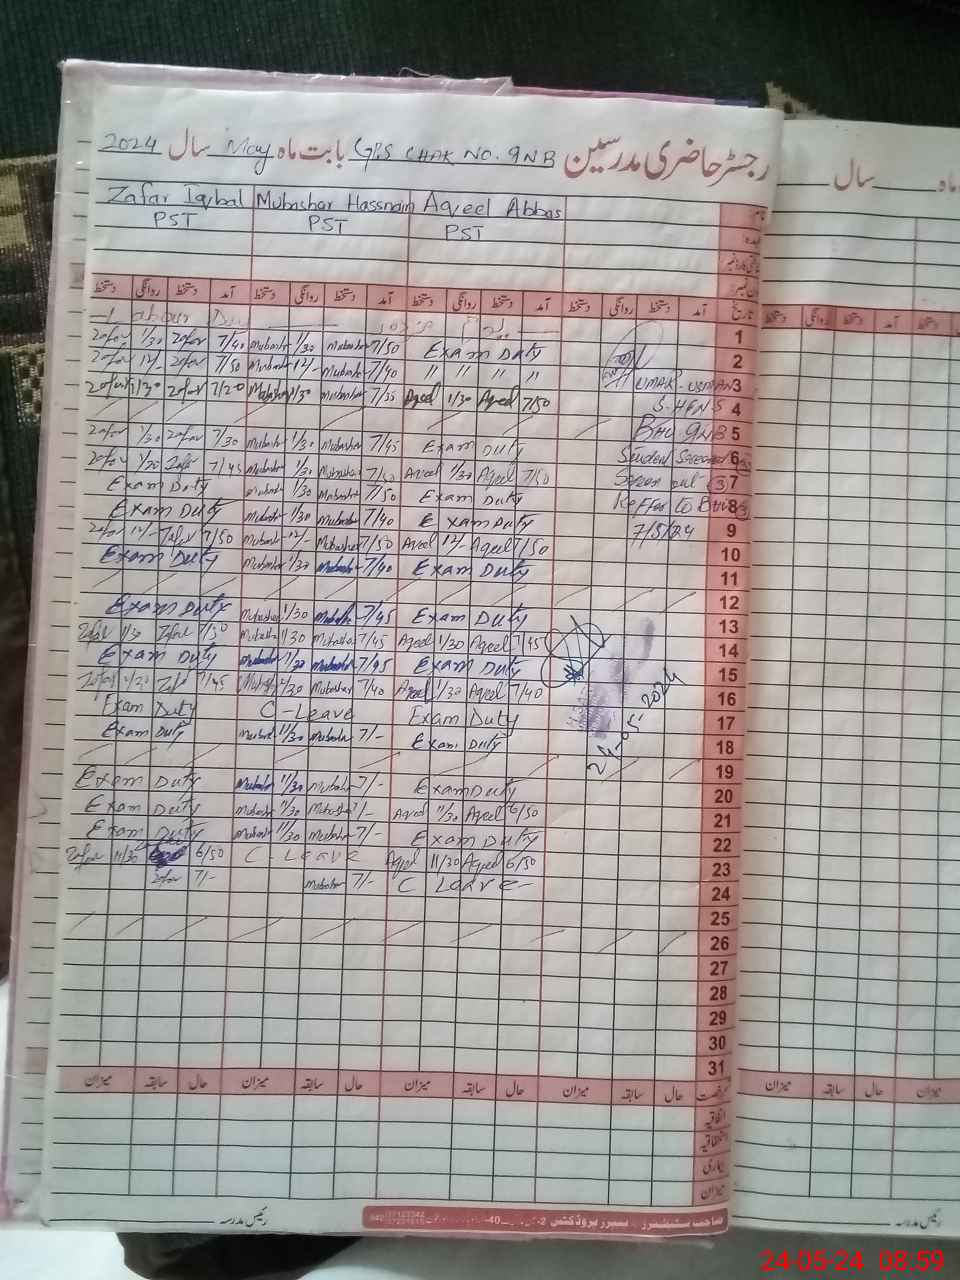 رجسٹر حاضری مدرسین GPS CHAK NO. 9NB بابت ماہ May سال 2024
ماہ سال
نام Aqeel Abbas Mubashar Hassnain Zafar Iqbal
عہدہ PST PST PST
تاریخ آمد دستخط روانگی دستخط آمد دستخط روانگی دستخط آمد دستخط روانگی دستخط آمد دستخط روانگی دستخط
1 Labour Day
2 Zafar 1/30 Zafar 7/40 Mubashar 1/30 Mubashar 7/50 Exam Duty
3 Zafar 12/- Zafar 7/50 Mubashar 12/- Mubashar 7/40 " " " " UMAR-USMAN
4 Zafar 1/30 Zafar 7/20 Mubashar 1/30 Mubashar 7/35 Aqeel 1/30 Aqeel 7/50 S.H&N.S
5 BHU 9NB
6 Zafar 1/30 Zafar 7/30 Mubashar 1/30 Mubashar 7/45 Exam Duty Student Screened
7 Zafar 1/30 Zafar 7/45 Mubashar 1/30 Mubashar 7/50 Aqeel 1/30 Aqeel 7/50 Screen out (3)
8 Exam Duty Mubashar 1/30 Mubashar 7/50 Exam Duty Reffer to BHU (3)
9 Exam Duty Mubashar 1/30 Mubashar 7/40 Exam Duty 7/5/24
10 Zafar 12/- Zafar 7/50 Mubashar 12/- Mubashar 7/50 Aqeel 12/- Aqeel 7/50
11 Exam Duty Mubashar 1/30 Mubashar 7/40 Exam Duty
12
13 Exam Duty Mubashar 1/30 Mubashar 7/45 Exam Duty
14 Zafar 1/30 Zafar 7/30 Mubashar 1/30 Mubashar 7/45 Aqeel 1/30 Aqeel 7/45
15 Exam Duty Mubashar 1/30 Mubashar 7/45 Exam Duty
16 Zafar 1/30 Zafar 7/45 Mubashar 1/30 Mubashar 7/40 Aqeel 1/30 Aqeel 7/40
17 Exam Duty C-Leave Exam Duty 24-05-2024
18 Exam Duty Mubashar 11/30 Mubashar 7/- Exam Duty
19
20 Exam Duty Mubashar 11/30 Mubashar 7/- Exam Duty
21 Exam Duty Mubashar 11/30 Mubashar 7/- Aqeel 11/30 Aqeel 6/50
22 Exam Duty Mubashar 11/30 Mubashar 7/- Exam Duty
23 Zafar 11/30 6/50 C-Leave Aqeel 11/30 Aqeel 6/50
24 Zafar 7/- Mubashar 7/- C Leave-
25
26
27
28
29
30
31
رخصت حال سابقہ میزان حال سابقہ میزان حال سابقہ میزان حال سابقہ میزان
اتفاقیہ
استحقاقیہ
بیماری
میزان
رئیس مدرسہ
رئیس مدرسہ
24-05-24 08:59